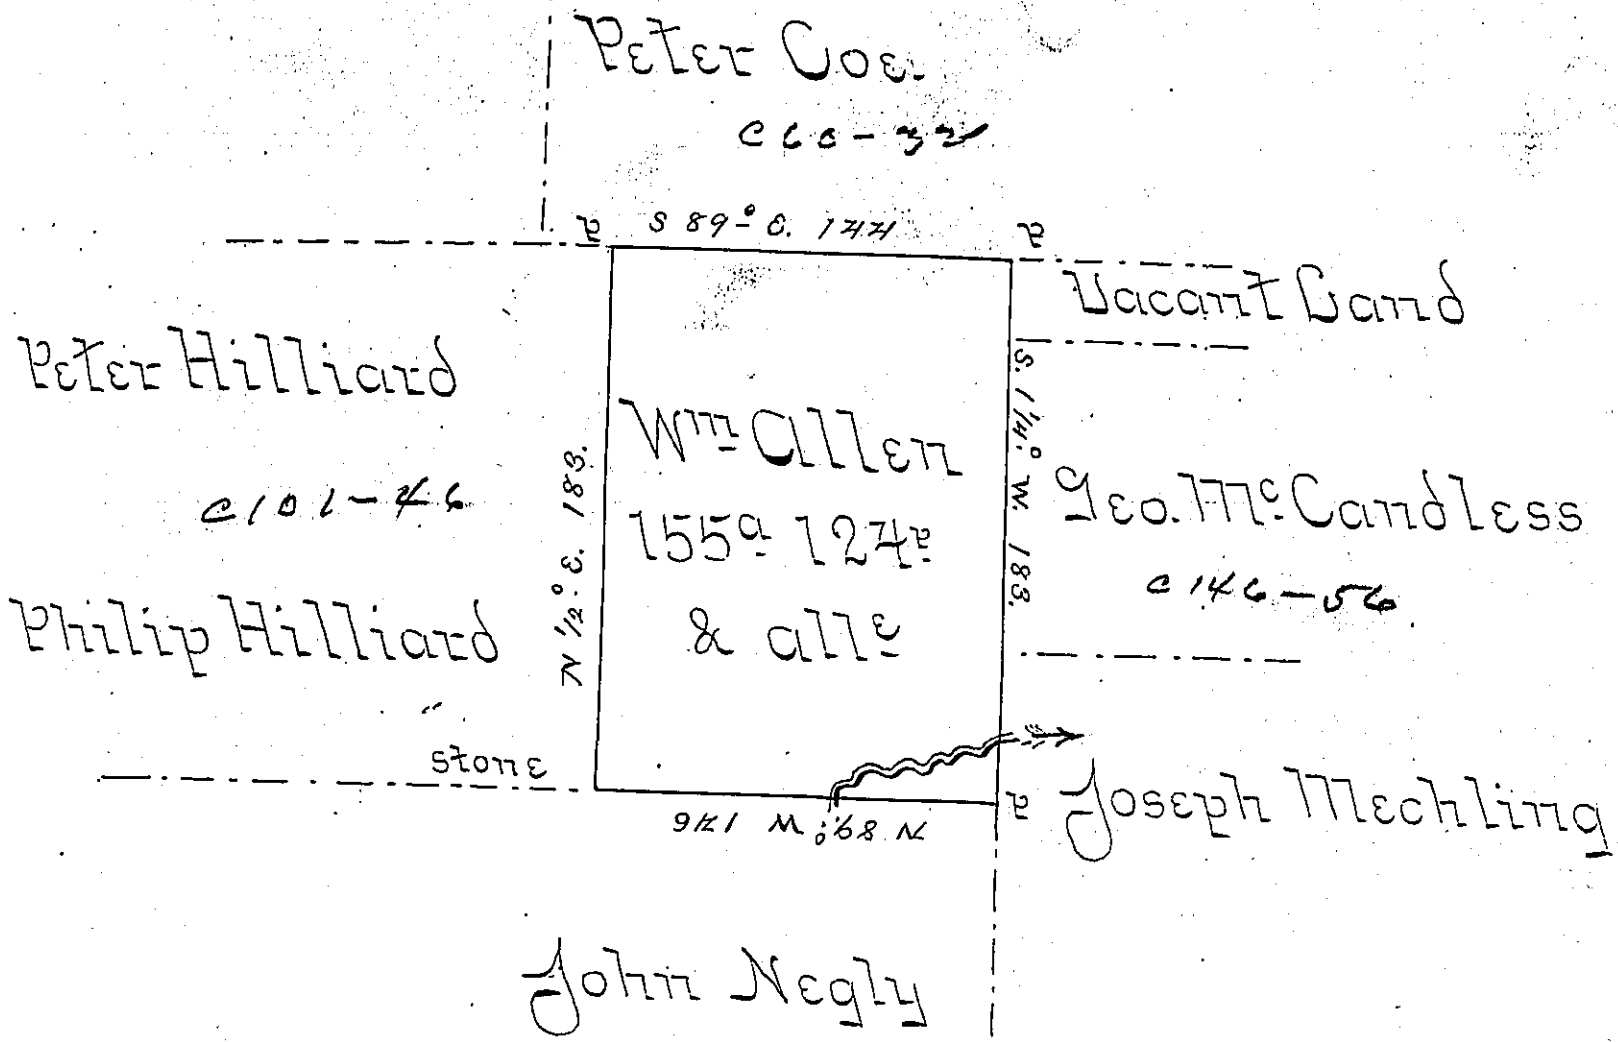 Peter Coe.
C60-32
a S 89° E. 144 a
Vacant Land
Peter Hilliard
C101-46
Philip Hilliard
N ½° E. 183.
Wm Allen
155a 124p
& alle
S. 1¼° W. 183.
Geo. McCandless
C146-56
stone
N 89° W 146
a
Joseph Mechling
John Negly